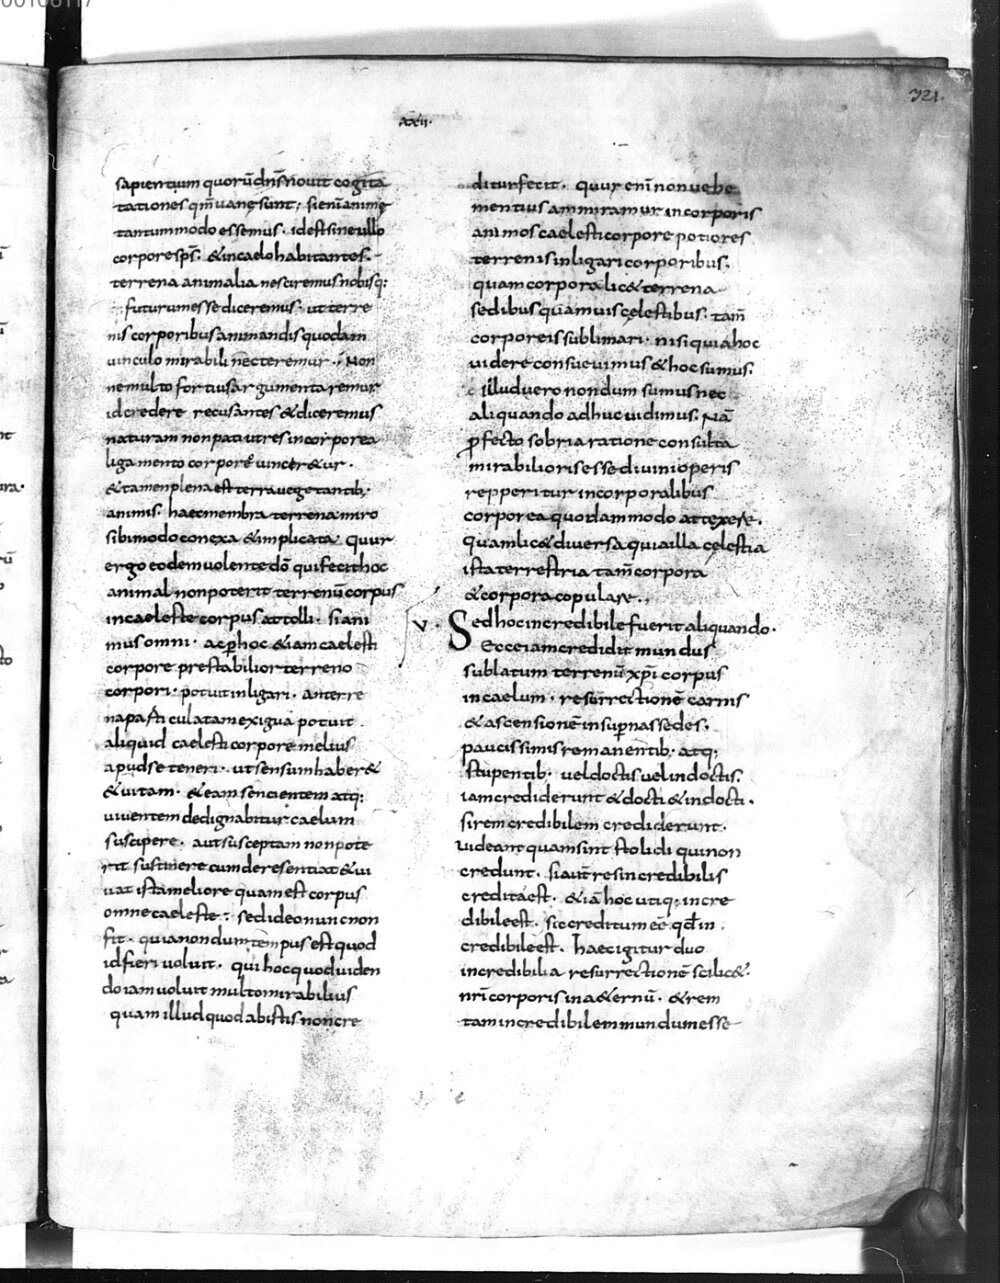 00106117
321.
xxii.
sapientium quorū dn̄s novit cogita
tationes qm̄ vanę sunt; si enī animę
tantummodo essemus. id est sine ullo
corpore sp̄s. & in caelo habitantes.
terrena animalia nesciremus nobisq;
futurum esse diceremus. ut terre
nis corporibus animandis quodam
vinculo mirabili necteremur. Non
ne multo fortius argumentaremur
id credere recusantes & diceremus
naturam non pati ut res incorporea
ligamento corporeo vincer&ur.
& tamen plena est terra vegetantib;
animis. haec membra terrena miro
sibi modo conexa & implicata. quur
ergo eodem volente dō qui fecit hoc
animal non poterit terrenū corpus
in caeleste corpus attolli. si ani
mus omni. ac p̱ hoc & iam caelesti
corpore prestabilior terreno
corpori. potuit inligari. an terre
na particula tam exigua potuit
aliquid caelesti corpore melius
apud se teneri. ut sensum haber&
& vitam. & eam sencientem atq;
viventem dedignabitur caelum
suscipere. aut susceptam non pote
rit sustinere cum de re sentiat & vi
vat ista meliore quam est corpus
omne caeleste; sed ideo nunc non
fit. quia nondum tempus est quod
id fieri voluit. qui hoc quod viden
do iam voluit multo mirabilius
quam illud quod ab istis non cre
ditur fecit. quur enī non vehe
mentius ammiramur incorporis
animos caelesti corpore potiores
terrenis inligari corporibus.
quam corpora lic& terrena
sedibus quamvis cęlestibus. tam̄
corporeis sublimari. nisi quia hoc
videre consuevimus & hoc sumus.
illud vero nondum sumus nec
aliquando adhuc vidimus. Nā
p̱fecto sobria ratione consulta
mirabilioris esse divini operis
repperitur incorporalibus
corporea quodammodo attexere.
quam lic& diversa quia illa cęlestia
ista terrestria tam̄ corpora
& corpora copulare.
V. Sed hoc incredibile fuerit aliquando.
Ecce iam credidit mundus
sublatum terrenū xp̄i corpus
in caelum. resurrectionē carnis
& ascensionē in sup̱nas sedes.
paucissimis remanentib. atq;
stupentib. vel doctis vel indoctis.
iam crediderunt & docti & indocti.
si rem credibilem crediderunt.
videant quam sint stolidi qui non
credunt. si aut̄ res incredibilis
credita est. &iā hoc utiq; incre
dibile est. sic creditum eē qd̄ in
credibile est. haec igitur duo
incredibilia resurrectionē scilic&.
nr̄i corporis in a&ernū. & rem
tam incredibilem mundum esse